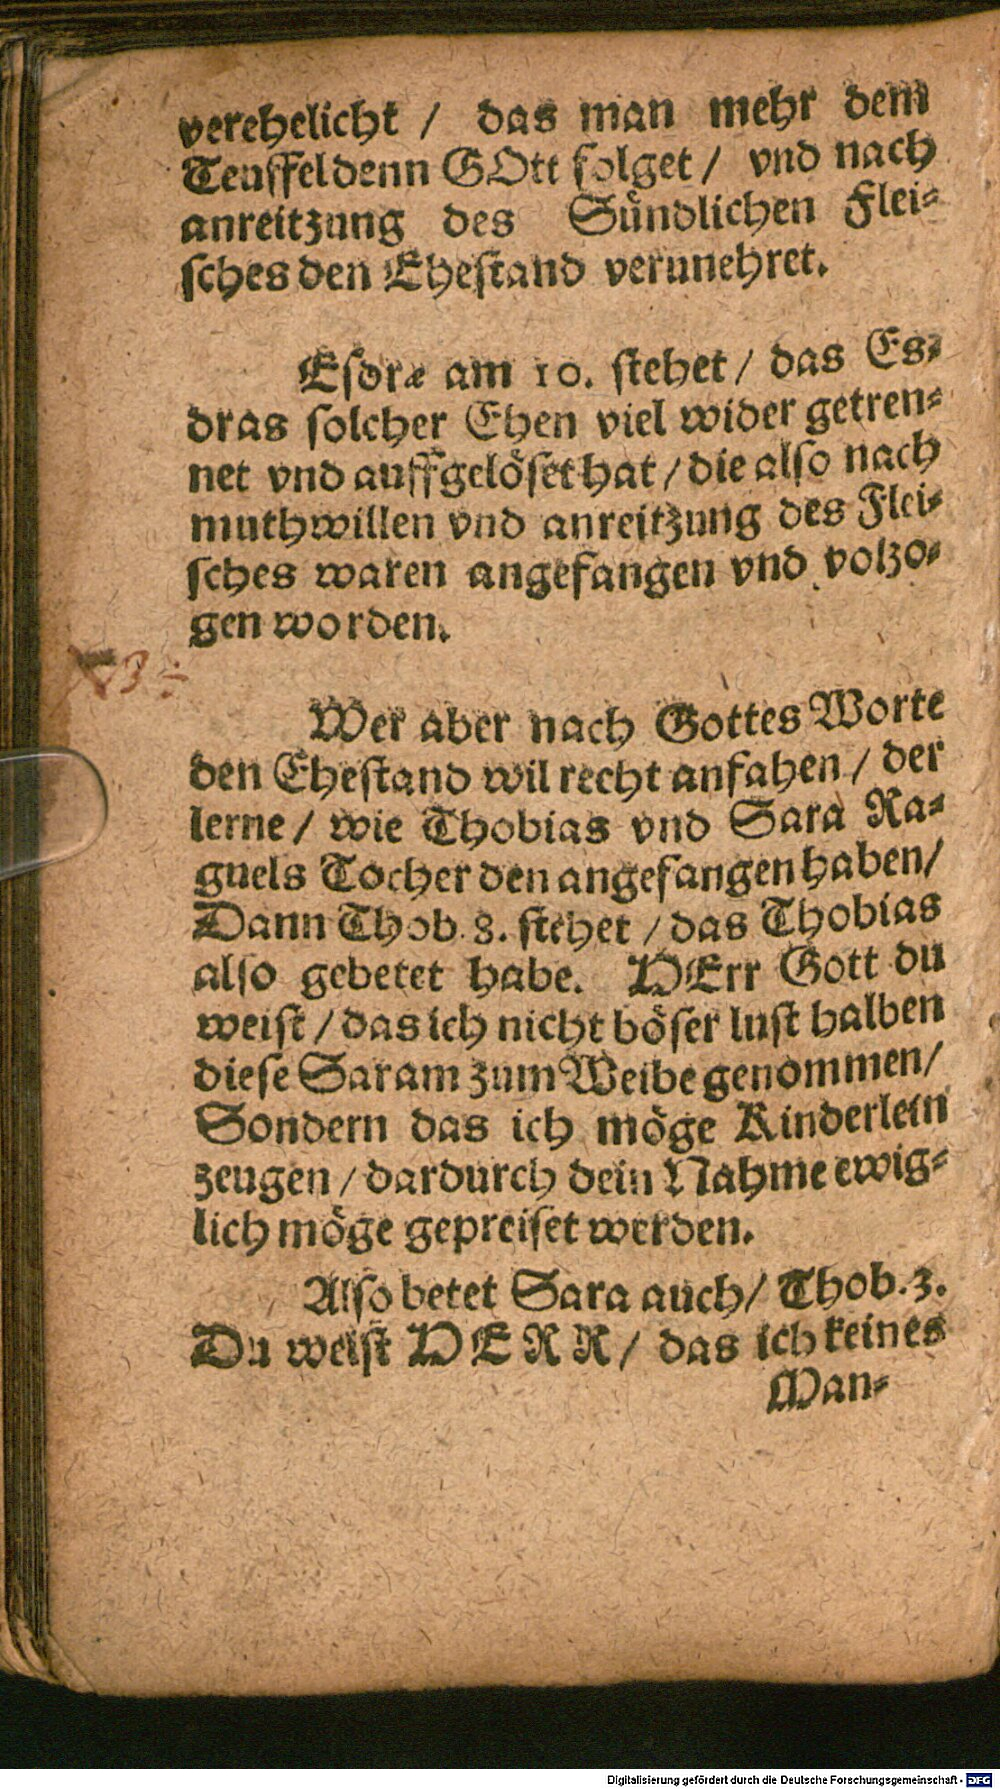 verehelicht / das man mehr dem
Teuffel denn GOtt folget / vnd nach
anreitzung des Sündlichen Flei-
sches den Ehestand verunehret.
Esdræ am 10. stehet / das Es-
dras solcher Ehen viel wider getren-
net vnd auffgelöset hat / die also nach
muthwillen vnd anreitzung des Flei-
sches waren angefangen vnd volzo-
gen worden.
Wer aber nach Gottes Worte
den Ehestand wil recht anfahen / der
lerne / wie Thobias vnd Sara Ra-
guels Tocher den angefangen haben /
Dann Thob. 8. stehet / das Thobias
also gebetet habe. HErr Gott du
weist / das ich nicht böser lust halben
diese Saram zum Weibe genommen /
Sondern das ich möge Kinderlein
zeugen / dardurch dein Nahme ewig-
lich möge gepreiset werden.
Also betet Sara auch / Thob. 3.
Du weist HERR / das ich keines
Man-
Digitalisierung gefördert durch die Deutsche Forschungsgemeinschaft - DFG